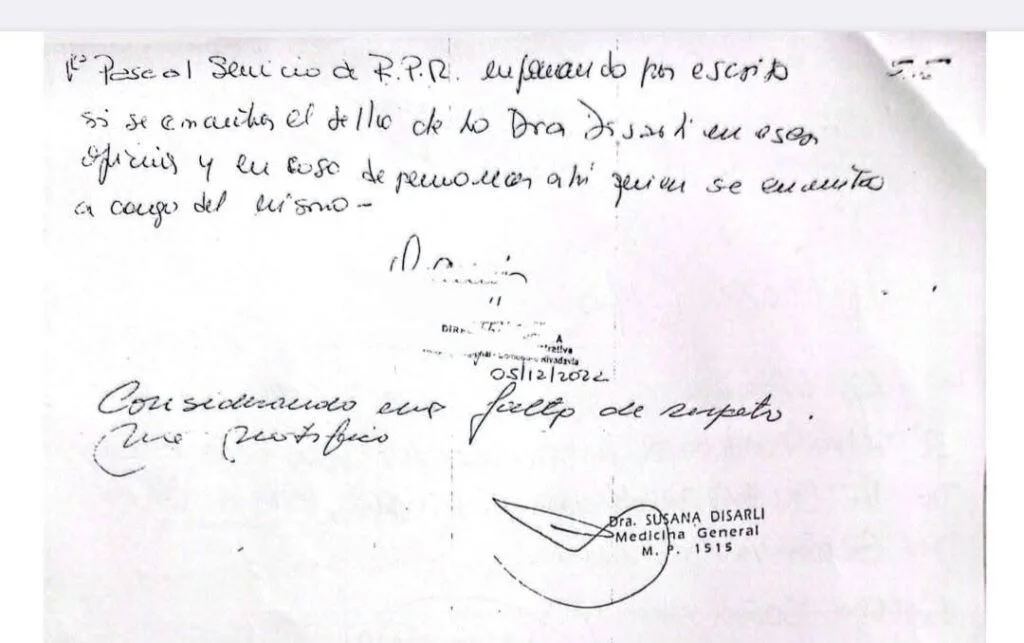 Pase al Servicio de R.P.R. informando por escrito
si se encuentra el sello de la Dra Disarli en esa
oficina y en caso de permanecer ahi quien se encuentra
a cargo del mismo -
05/12/2022
Considerando una falta de respeto.
me notifico
Dra. SUSANA DISARLI
Medicina General
M. P. 1515